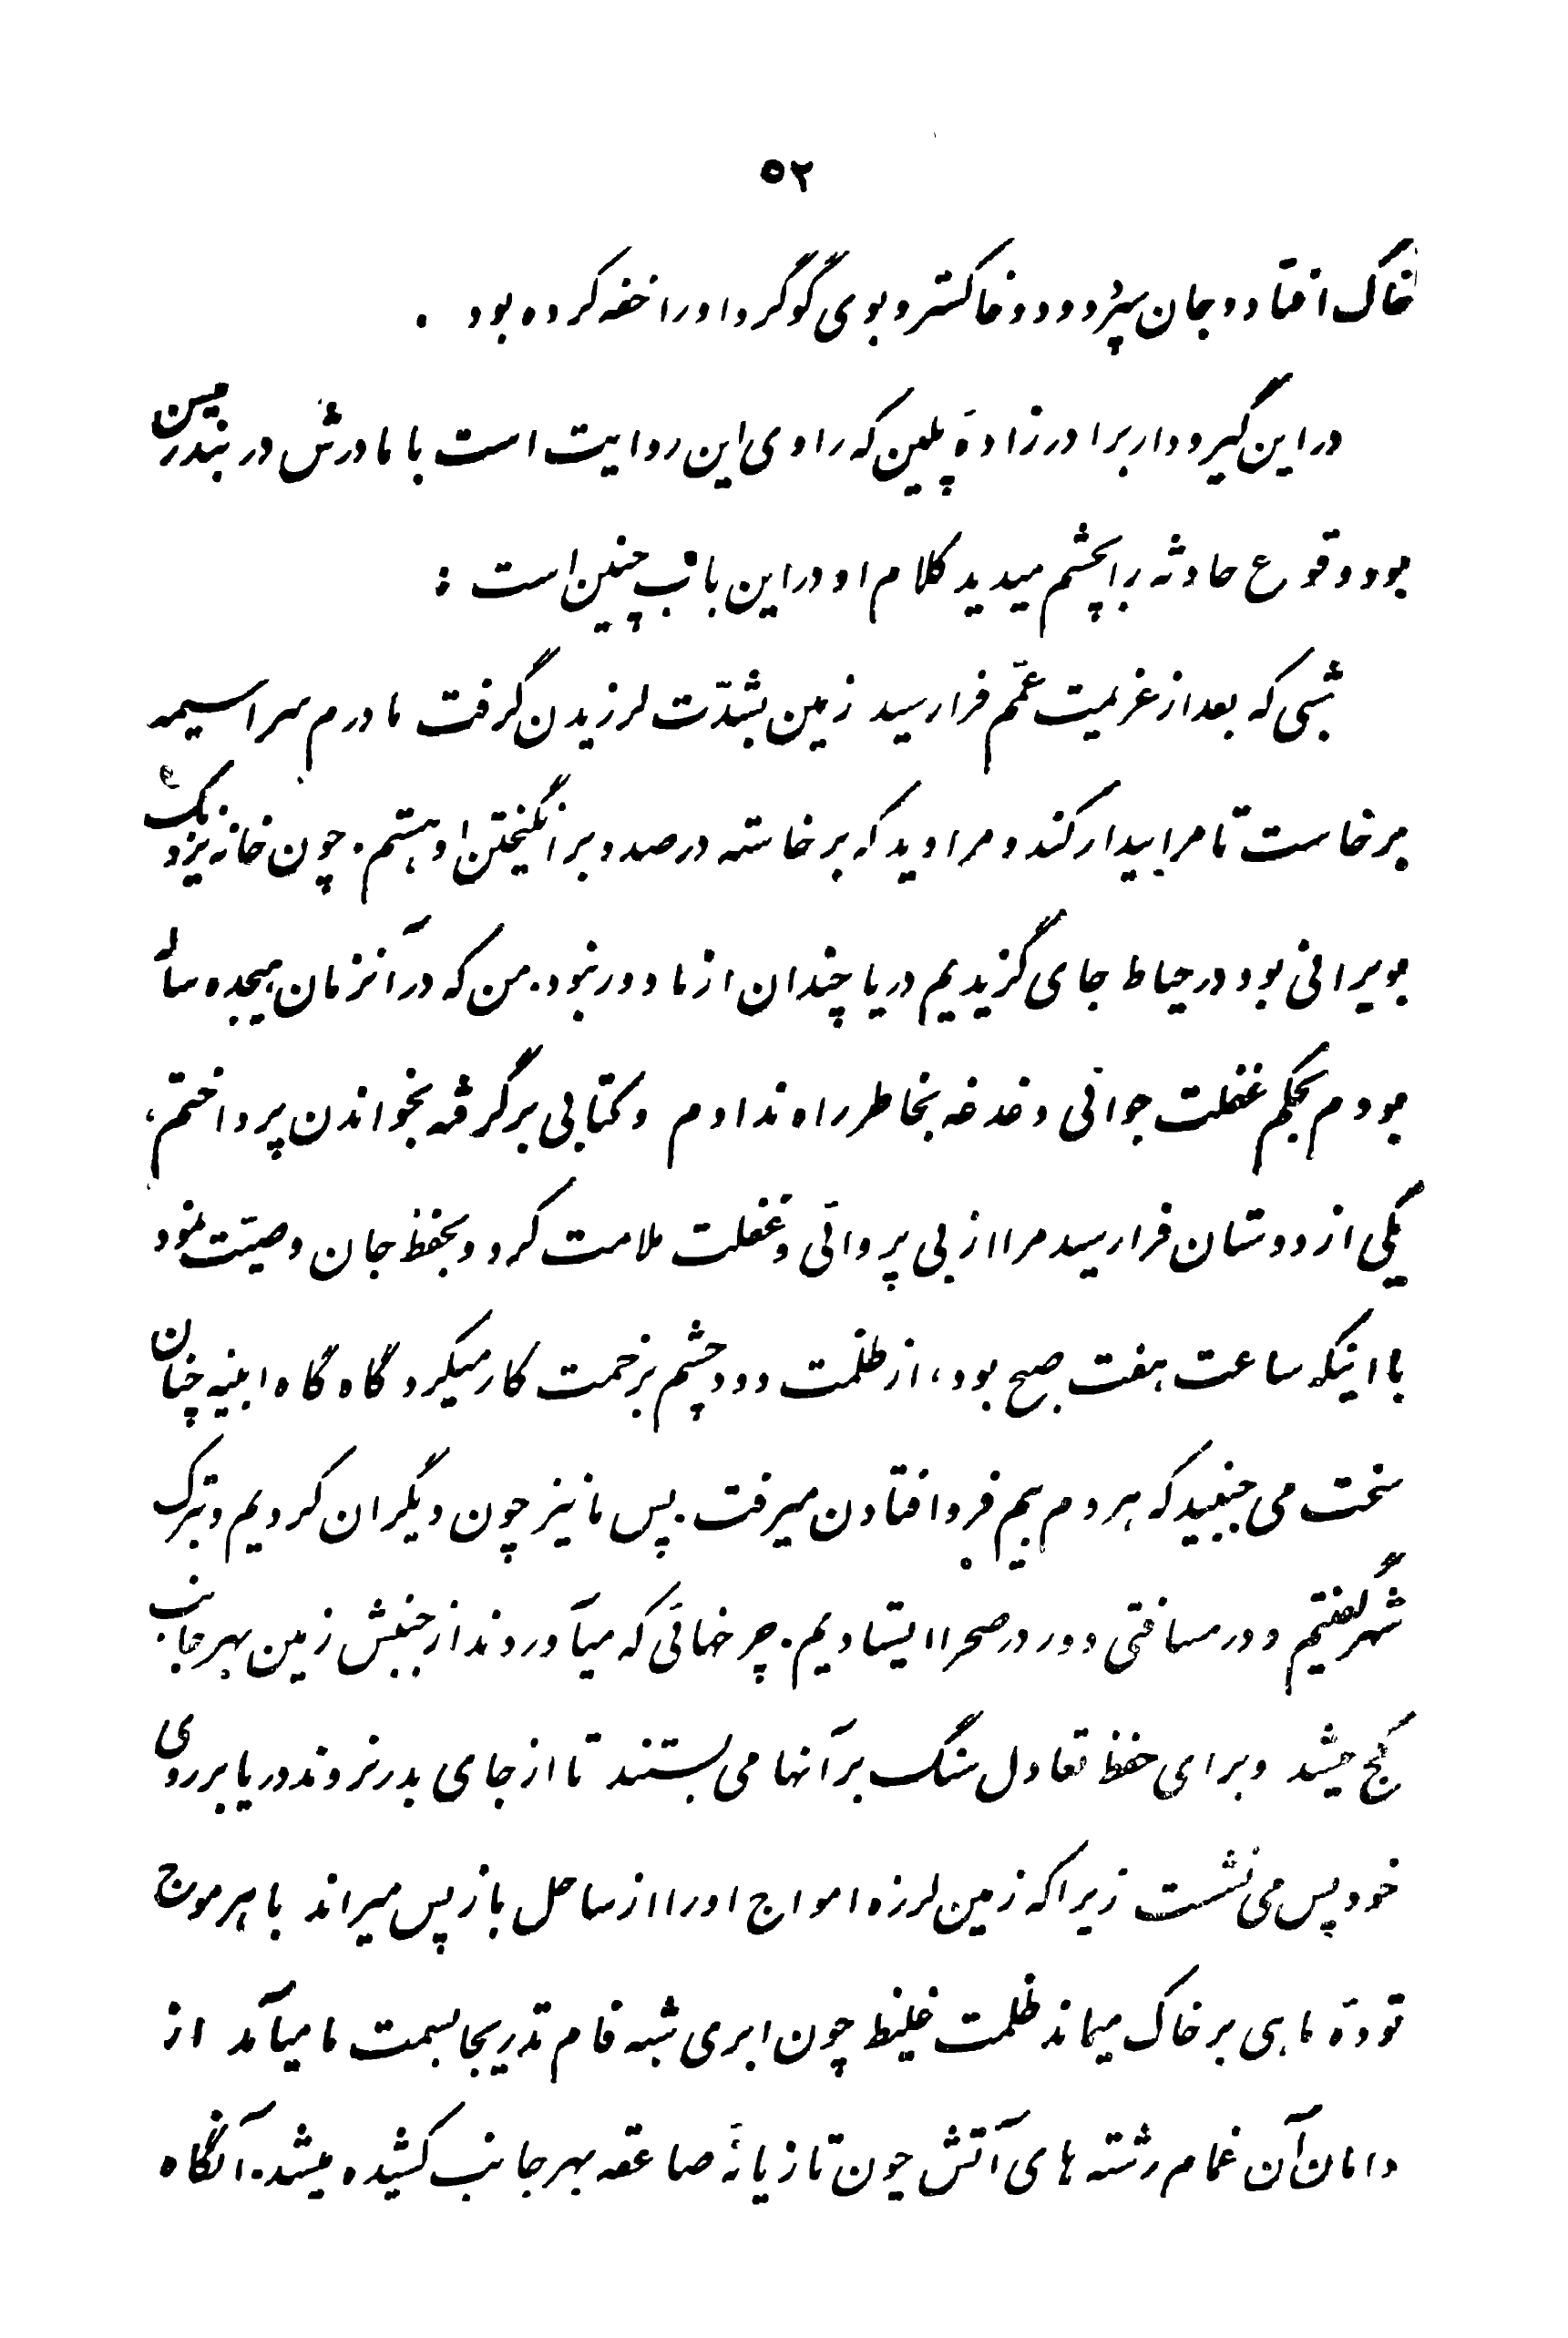 ۵۲
خاک افتاد و جان سپرد و دود و خاکستر و بوی گوگرد او را خفه کرده بود .
در این گیر و دار برادر زادهٔ پلین که راوی این روایت است با مادرش در بندر میسن
بود و وقوع حادثه را بچشم میدید کلام او در این باب چنین است :
شبی که بعد از عزیمت عمّم فرا رسید زمین بشدّت لرزیدن گرفت مادرم سراسیمه
برخاست تا مرا بیدار کند و مرا دید که برخاسته در صدد برانگیختن او هستم . چون خانه نزدیک
بویرانی بود در حیاط جای گزیدیم دریا چندان از ما دور نبود . من که در آنزمان هیجده ساله
بودم بحکم غفلت جوانی دغدغه بخاطر راه ندادم و کتابی برگرفته بخواندن پرداختم ،
یکی از دوستان فرا رسید مرا از بی پروائی و غفلت ملامت کرد و بحفظ جان وصیّت نمود
با اینکه ساعت هفت صبح بود ، از ظلمت دود چشم بزحمت کار میکرد گاه گاه ابنیه چنان
سخت می جنبید که هر دم بیم فرو افتادن میرفت . پس ما نیز چون دیگران کردیم و ترک
شهر گفتیم و در مسافتی دور در صحرا ایستادیم . چرخهائی که میآوردند از جنبش زمین بهر جانب
کج میشد و برای حفظ تعادل سنگ بر آنها می بستند تا از جای بدر نروند دریا بر روی
خود پس می نشست زیرا که زمین لرزه امواج او را از ساحل باز پس میراند با هر موج
تودهٔ ماهی بر خاک میماند ظلمت غلیظ چون ابری شبه فام تدریجا بسمت ما میآمد از
دامان آن غمام رشته های آتش چون تازیانهٔ صاعقه بهر جانب کشیده میشد . آنگاه